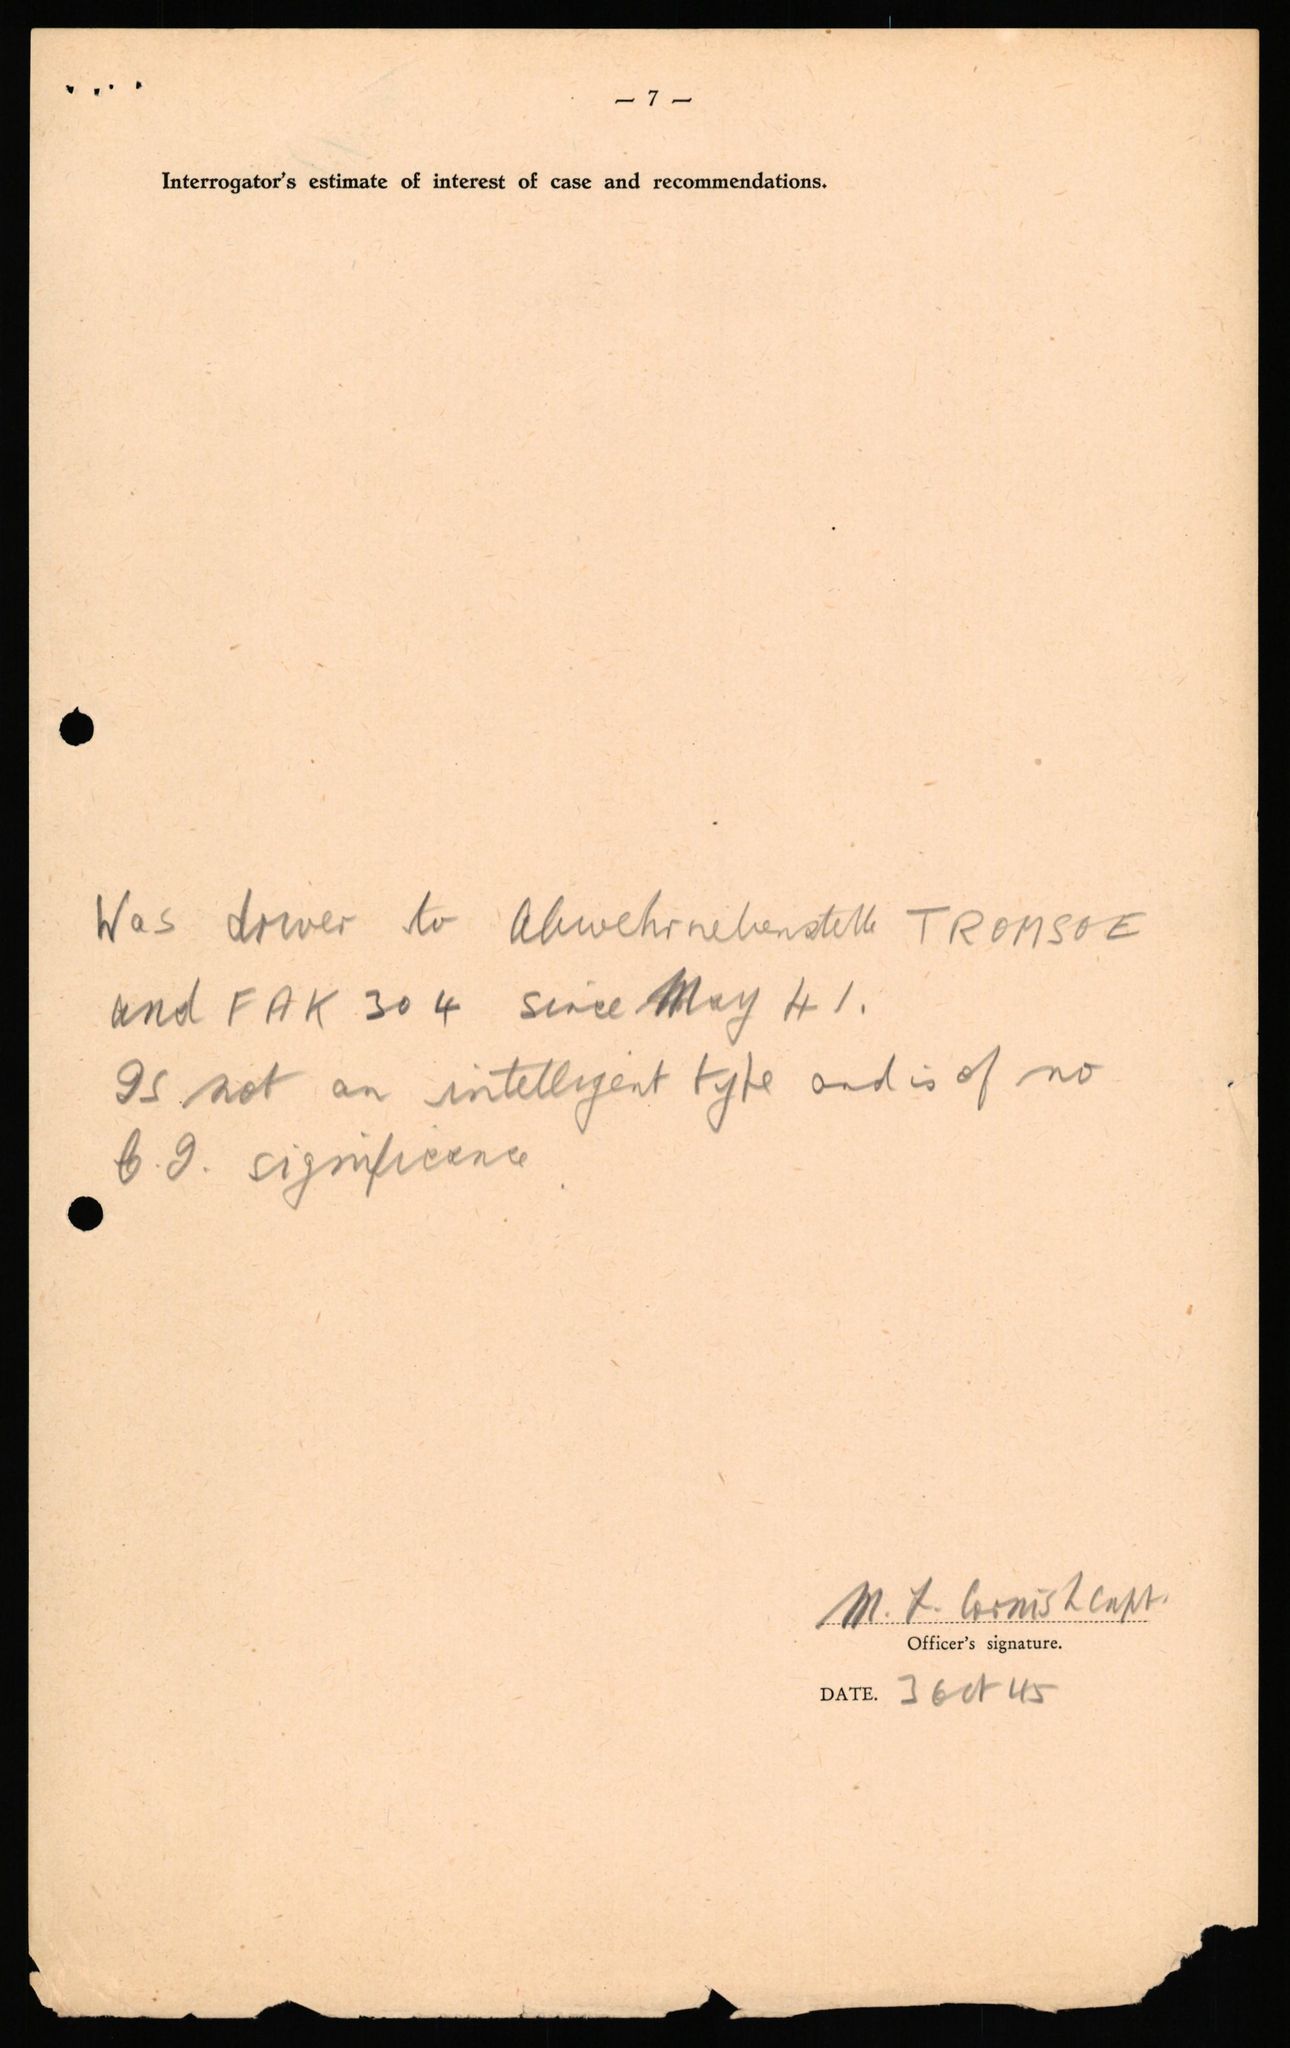 — 7 —
Interrogator's estimate of interest of case and recommendations.
Was driver to Abwehrnebenstelle TROMSOE
and FAK 304 since May 41.
Is not an intelligent type and is of no
C.I. significance.
M. F. Cornish Capt.
Officer's signature.
DATE. 3 Oct 45